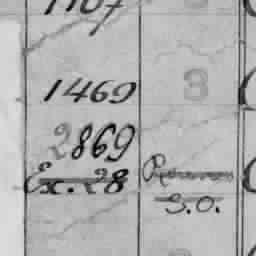 1107
1469 3
2869
Ex. 28
S.O.